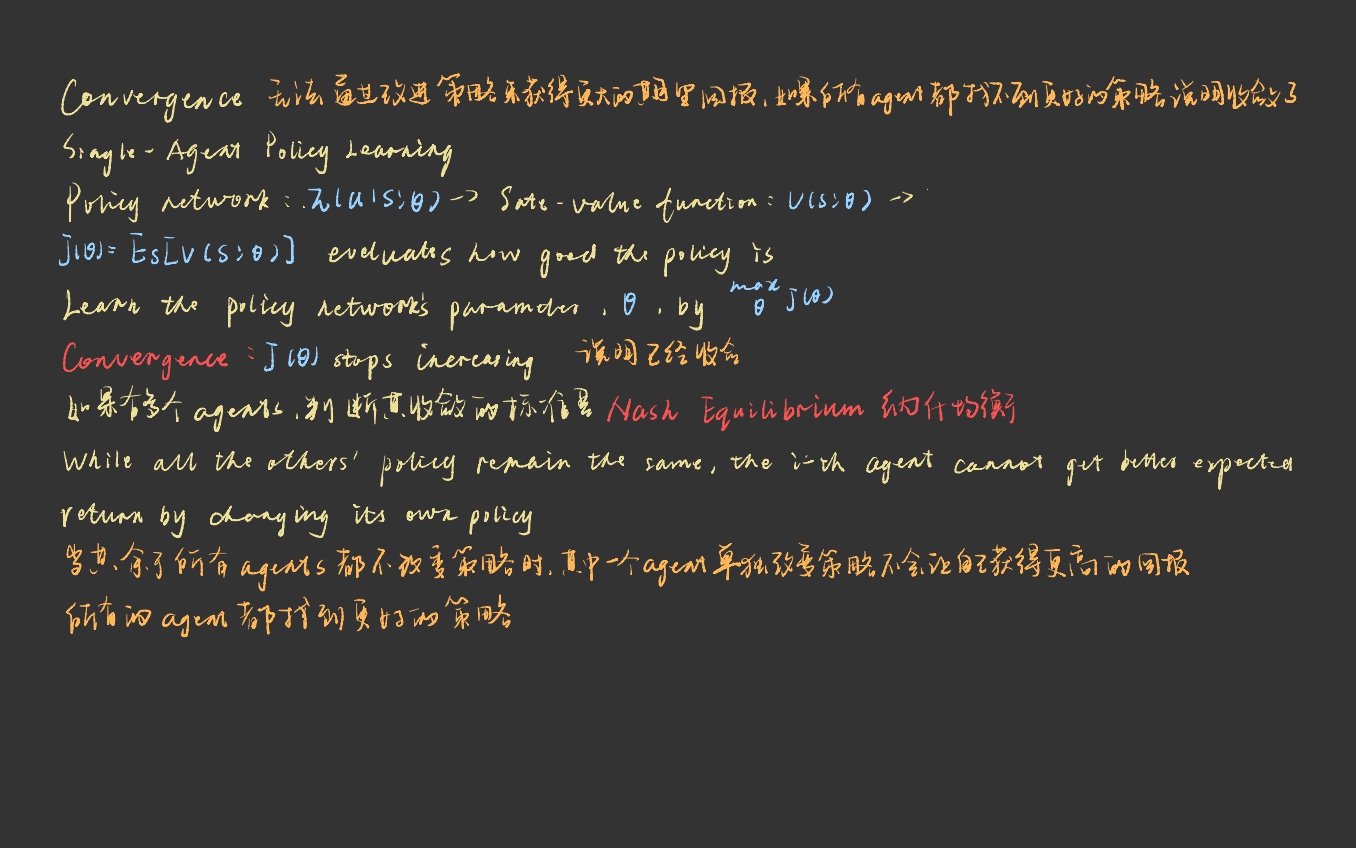 Convergence 无法通过改进策略来获得更大的期望回报，如果所有agent都找不到更好的策略说明收敛了
Single-Agent Policy Learning
Policy network: π(a|s;θ) -> Sate-value function: V(s;θ) ->
J(θ)= Es[V(S;θ)] evaluates how good the policy is
Learn the policy network's parameter, θ, by max θ J(θ)
Convergence: J(θ) stops increasing 说明已经收合
如果有多个 agents，判断其收敛的标准是 Nash Equilibrium 纳什均衡
While all the others' policy remain the same, the i-th agent cannot get better expected
return by changing its own policy
当其余了所有 agents 都不改变策略时，其中一个agent单独改变策略不会让自己获得更高的回报
所有的 agent 都找到更好的策略